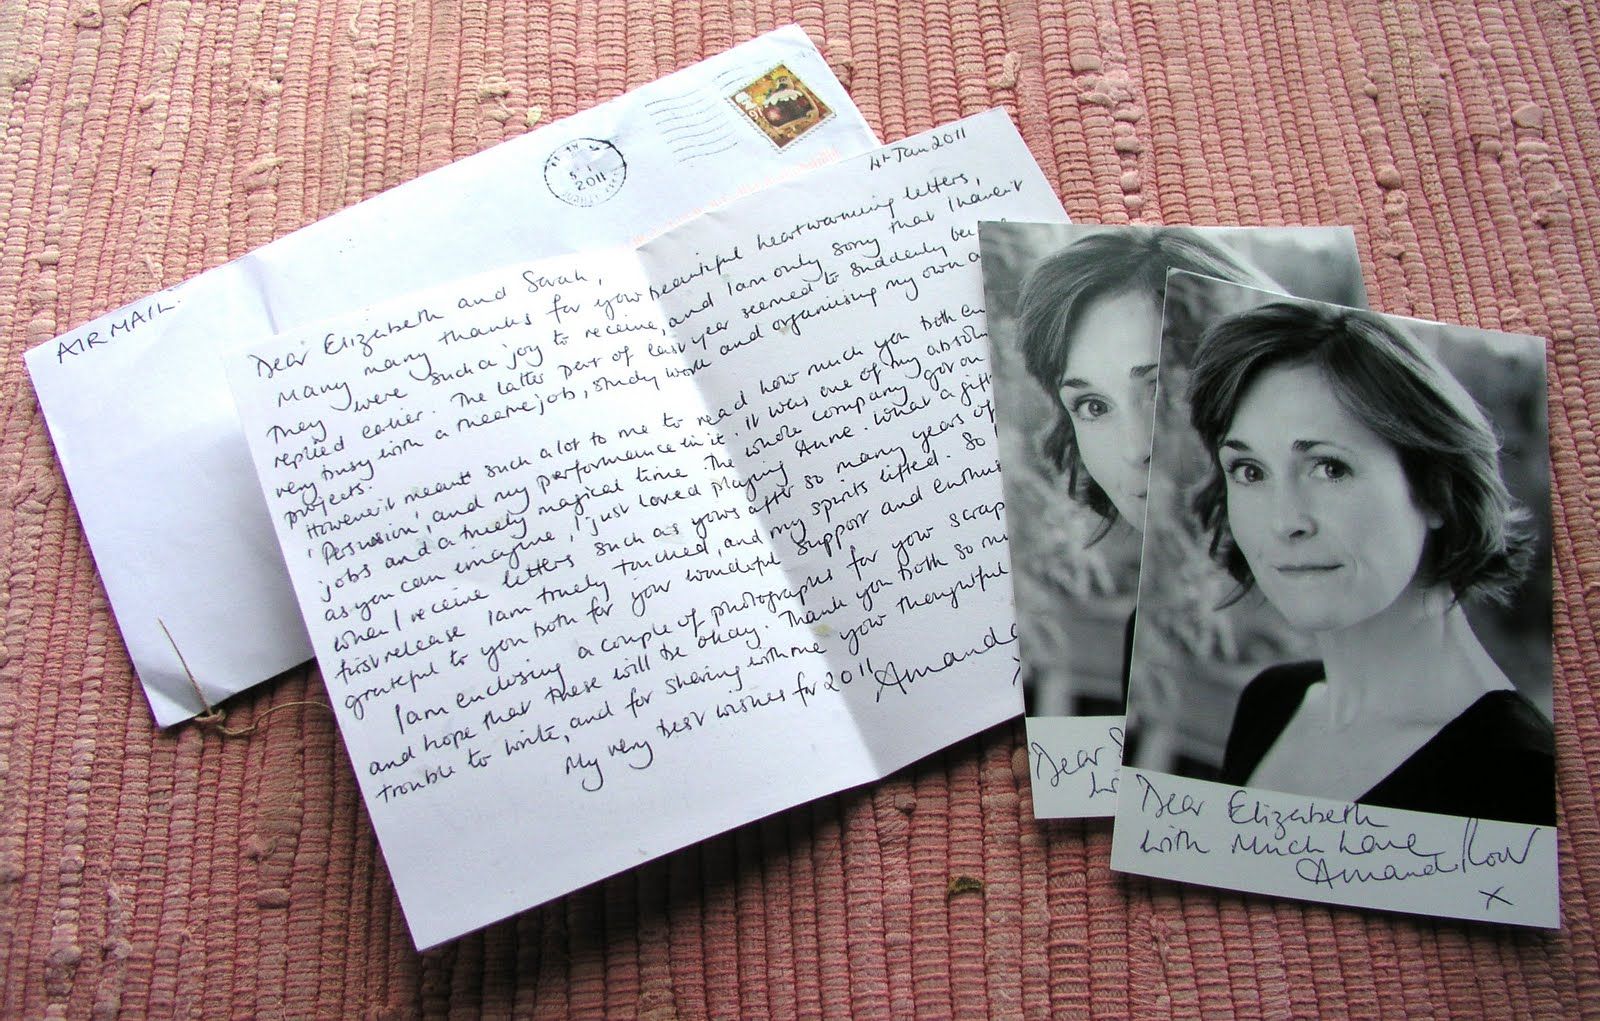 AIRMAIL.
5 1
2011
4th Jan 2011
Dear Elizabeth and Sarah,
Many many thanks for your beautiful heartwarming letters,
They were such a joy to receive, and I am only sorry that I haven't
replied earlier. The latter part of last year seemed to suddenly be
very busy with a theatre job, study work and organising my own
projects.
However it meant such a lot to me to read how much you both
'Persuasion', and my performance in it. It was one of my
jobs and a truely magical time. The whole company got on
as you can imagine, I just loved playing Anne. What a gift
when I receive letters such as yours after so many years of
first release I am truely touched, and my spirits lifted. So
grateful to you both for your wonderful support and
I am enclosing a couple of photographs for your
and hope that these will be okay. Thank you both so
trouble to write, and for sharing with me your thoughtful
My very best wishes for 2011
Amanda
Dear
Dear Elizabeth
with Much Love
Amanda Root
x